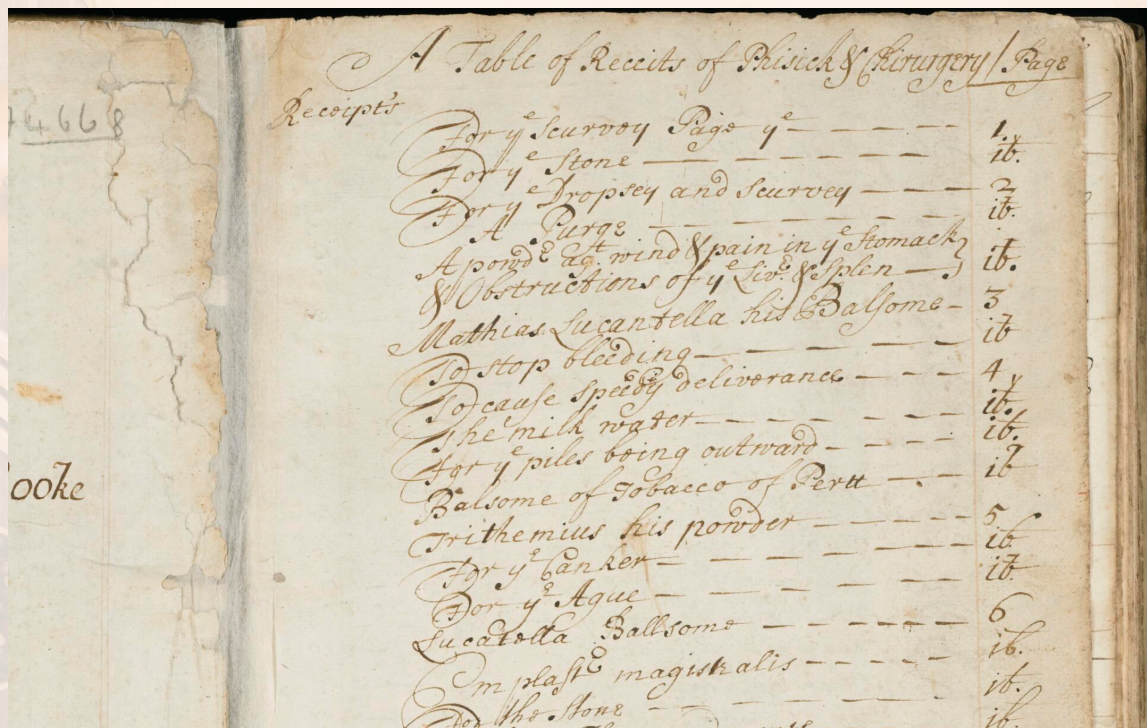 74668
ooke
A Table of Receits of Phisick & Chirurgery / Page
Receipts
For yᵉ Scurvey Page yᵉ - - - - - 1.
For yᵉ Stone - - - - - ib.
For yᵉ Dropsey and Scurvey - - - 2
A Purge - - - - - ib.
A powdᵉ agᵗ wind & pain in yᵉ Stomack }
& Obstructions of yᵉ Livᵉ & Splen - } ib.
Mathias Lucantella his Balsome - 3
To stop bleeding - - - - - ib
To cause speedy deliverance - - - 4
The milk water - - - - - ib.
For yᵉ piles being outward - - - - ib.
Balsome of Tobacco of Pertt - - - ib
Trithemius his powder - - - - - 5
For yᵉ Canker - - - - - ib
For yᵉ Ague - - - - - ib
Lucatella Ballsome - - - - - 6
Emplastᵉ magistralis - - - - - ib.
For the Stone - - - - - ib.
ib.